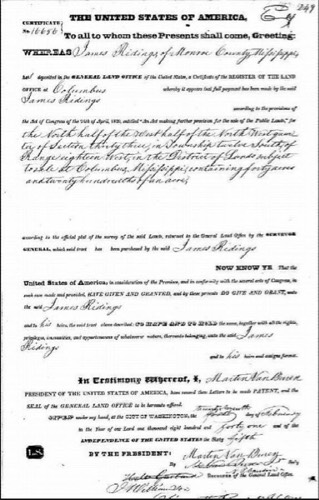 249
THE UNITED STATES OF AMERICA,
CERTIFICATE
To all to whom these Presents shall come, Greeting:
WHEREAS James Ridings of Monroe County, Mississippi,
deposited in the GENERAL LAND OFFICE of the United States, a Certificate of the REGISTER OF THE LAND
OFFICE at Columbus whereby it appears that full payment has been made by the said
James Ridings
according to the provisions
of the Act of Congress of the 24th of April, 1820, entitled "An Act making further provision for the sale of the Public Lands," for
the North half of the West half of the North West quar-
ter of Section thirty three, in Township twelve South, of
Range eighteen West, in the District of Lands subject
to sale at Columbus, Mississippi, containing forty acres
and twenty hundredths of an acre,
according to the official plat of the survey of the said Lands, returned to the General Land Office by the SURVEYOR
GENERAL, which said tract has been purchased by the said James Ridings
NOW KNOW YE, That the
United States of America, in consideration of the Premises, and in conformity with the several acts of Congress, in
such case made and provided, HAVE GIVEN AND GRANTED, and by these presents DO GIVE AND GRANT, unto the
said James Ridings
and to his heirs, the said tract above described: TO HAVE AND TO HOLD the same, together with all the rights,
privileges, immunities, and appurtenances of whatsoever nature, thereunto belonging, unto the said James
Ridings
and to his heirs and assigns forever.
In Testimony Whereof, I, Martin Van Buren
PRESIDENT OF THE UNITED STATES OF AMERICA, have caused these Letters to be made PATENT, and the
SEAL of the GENERAL LAND OFFICE to be hereunto affixed.
GIVEN under my hand, at the CITY OF WASHINGTON, the day of February
in the Year of our Lord one thousand eight hundred and forty one and of the
INDEPENDENCE OF THE UNITED STATES the Sixty fifth
BY THE PRESIDENT: Martin Van Buren
L.S.